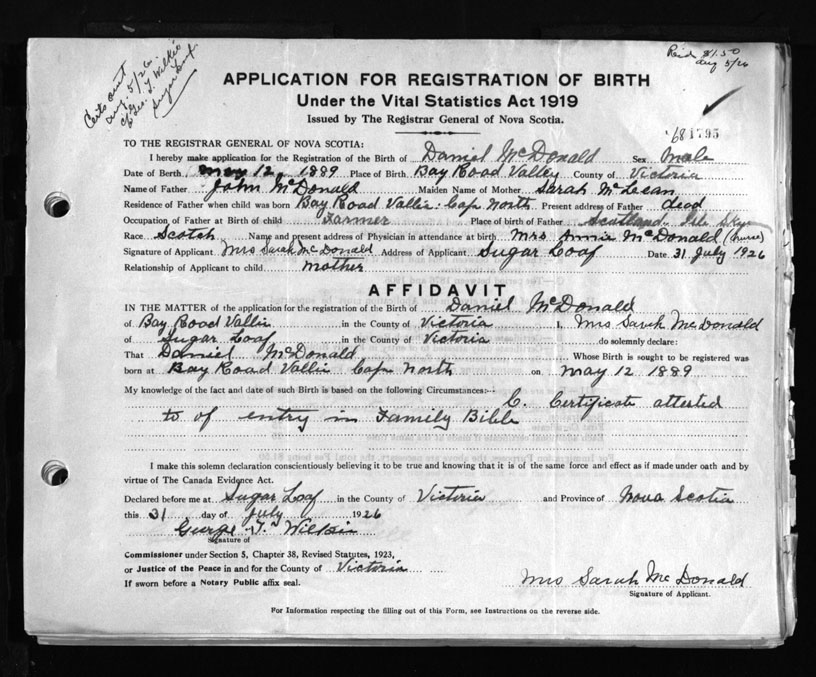 Certs sent
Aug. 5/26
c/o Geo. T. Wilkie
Sugar Loaf
Paid $1.50
Aug 5/26
APPLICATION FOR REGISTRATION OF BIRTH
Under the Vital Statistics Act 1919
Issued by The Registrar General of Nova Scotia.
681795
TO THE REGISTRAR GENERAL OF NOVA SCOTIA:
I hereby make application for the Registration of the Birth of Daniel McDonald Sex Male
Date of Birth May 12, 1889 Place of Birth Bay Road Valley County of Victoria
Name of Father John McDonald Maiden Name of Mother Sarah McLean
Residence of Father when child was born Bay Road Vallie: Cape North Present address of Father dead
Occupation of Father at Birth of child Farmer Place of birth of Father Scotland Isle Skye
Race Scotch Name and present address of Physician in attendance at birth Mrs Annie McDonald (nurse)
Signature of Applicant Mrs Sarah McDonald Address of Applicant Sugar Loaf Date 31 July 1926
Relationship of Applicant to child mother
AFFIDAVIT
IN THE MATTER of the application for the registration of the Birth of Daniel McDonald
of Bay Road Vallie in the County of Victoria I, Mrs Sarah McDonald
of Sugar Loaf in the County of Victoria do solemnly declare:
That Daniel McDonald Whose Birth is sought to be registered was
born at Bay Road Vallie Cape North on May 12 1889
My knowledge of the fact and date of such Birth is based on the following Circumstances:—
C. Certificate attested
to of entry in Family Bible
I make this solemn declaration conscientiously believing it to be true and knowing that it is of the same force and effect as if made under oath and by
virtue of The Canada Evidence Act.
Declared before me at Sugar Loaf in the County of Victoria and Province of Nova Scotia
this 31 day of July 1926
George T. Wilkie
Signature of
Commissioner under Section 5, Chapter 38, Revised Statutes, 1923,
or Justice of the Peace in and for the County of Victoria
If sworn before a Notary Public affix seal.
Mrs Sarah McDonald
Signature of Applicant.
For Information respecting the filling out of this Form, see Instructions on the reverse side.